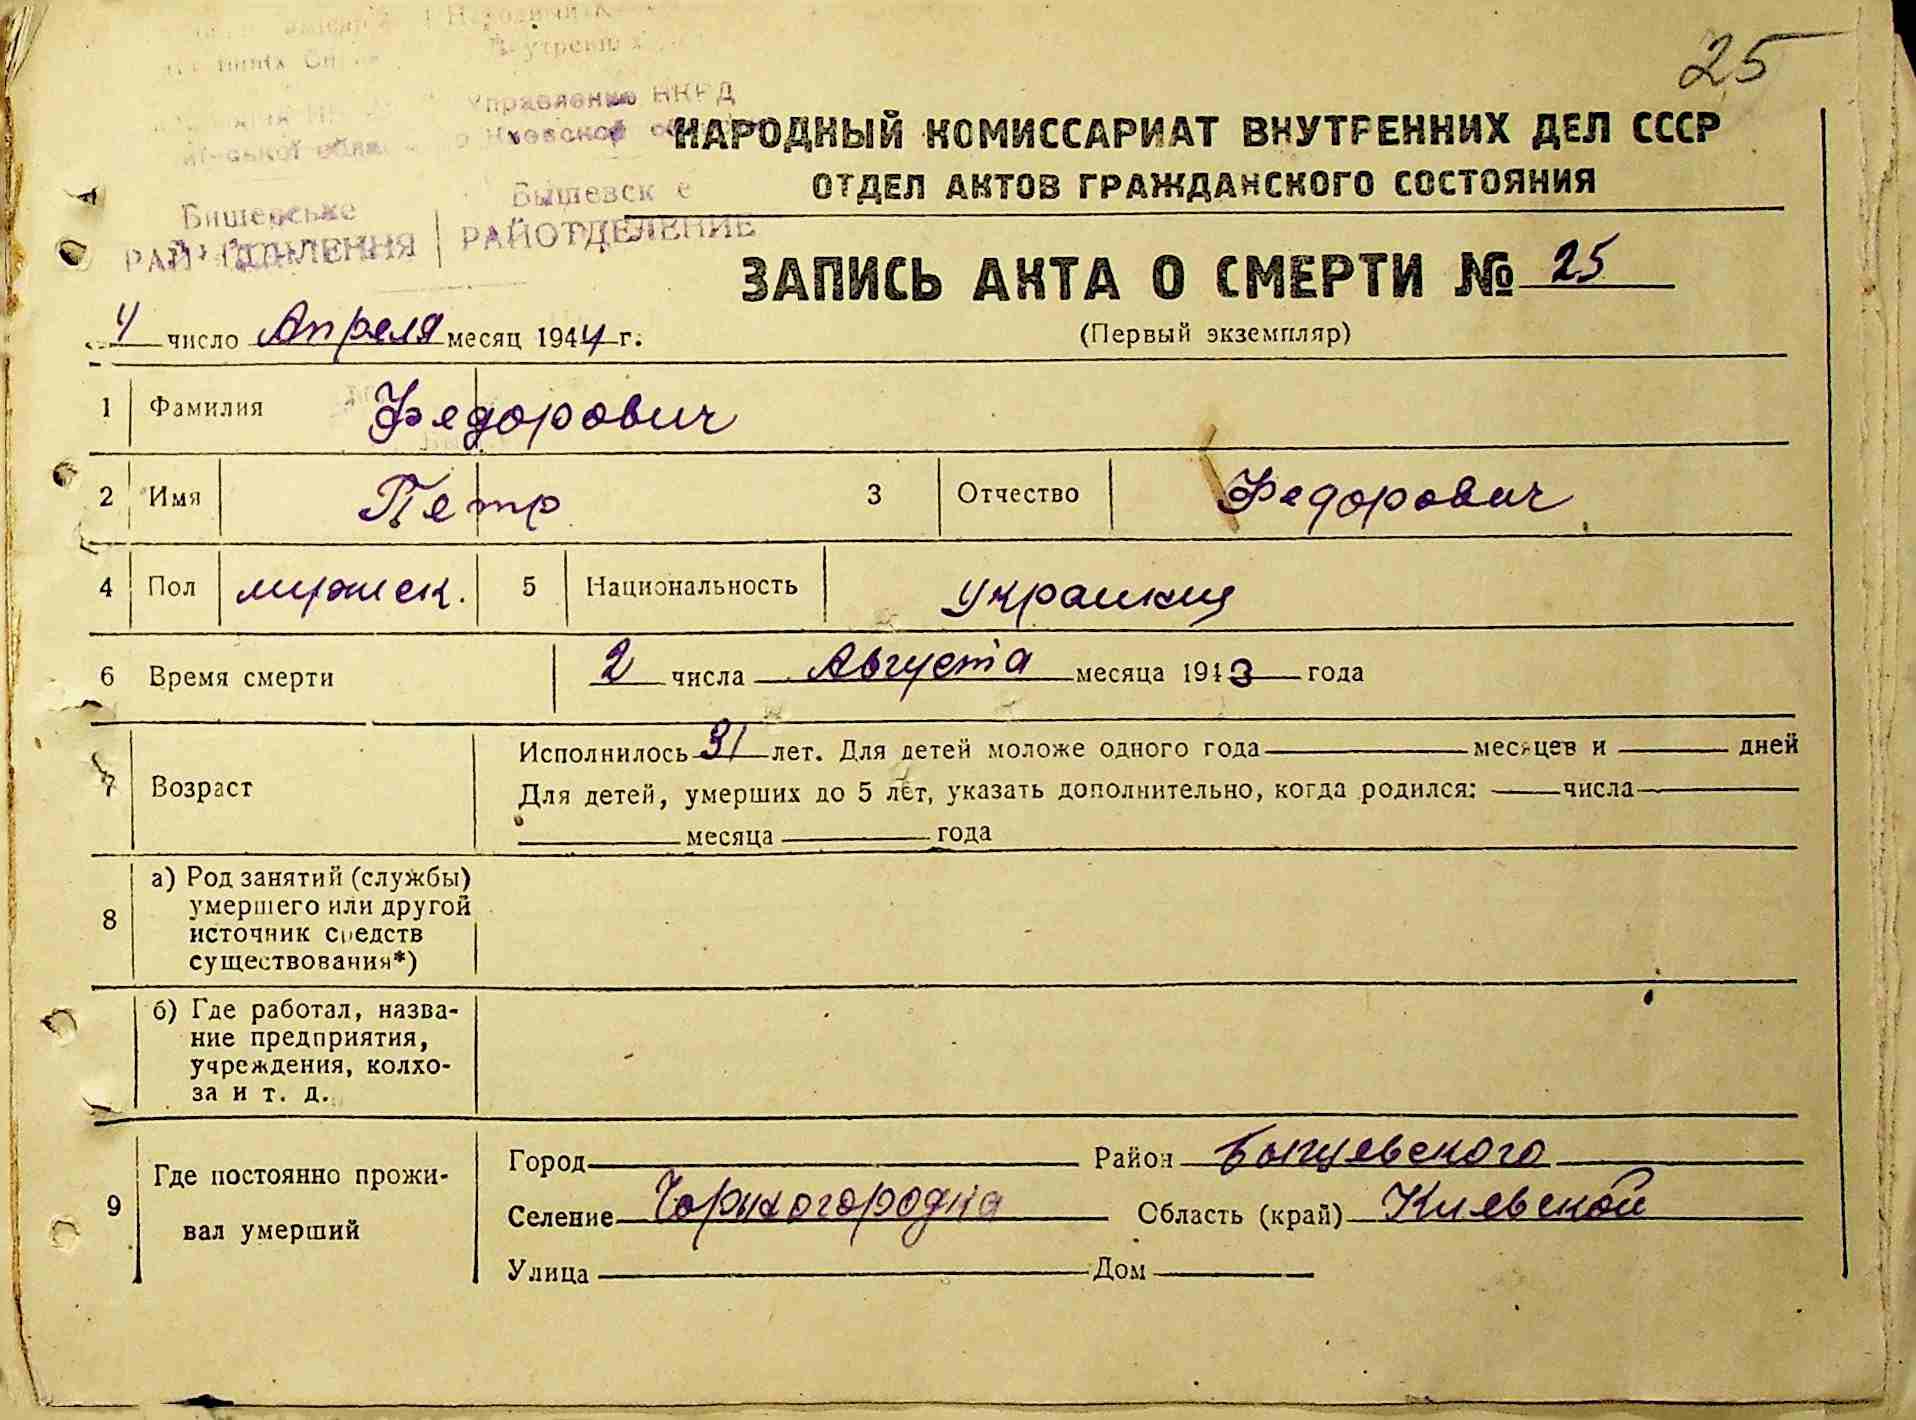 25
Управление НКВД
Киевской
Бишевське
Бышевск е
РАЙОТДЕЛЕНИЕ
НАРОДНЫЙ КОМИССАРИАТ ВНУТРЕННИХ ДЕЛ СССР
ОТДЕЛ АКТОВ ГРАЖДАНСКОГО СОСТОЯНИЯ
ЗАПИСЬ АКТА О СМЕРТИ № 25
4 число Апреля месяц 1944 г.
(Первый экземпляр)
1 Фамилия Федорович
2 Имя Петр 3 Отчество Федорович
4 Пол мужск. 5 Национальность украинец
6 Время смерти 2 числа Августа месяца 1943 года
7 Возраст
Исполнилось 31 лет. Для детей моложе одного года месяцев и дней
Для детей, умерших до 5 лет, указать дополнительно, когда родился: числа
месяца года
8
а) Род занятий (службы)
умершего или другой
источник средств
существования*)
б) Где работал, назва-
ние предприятия,
учреждения, колхо-
за и т. д.
9
Где постоянно прожи-
вал умерший
Город Район Бышевского
Селение Чорногородка Область (край) Киевской
Улица Дом